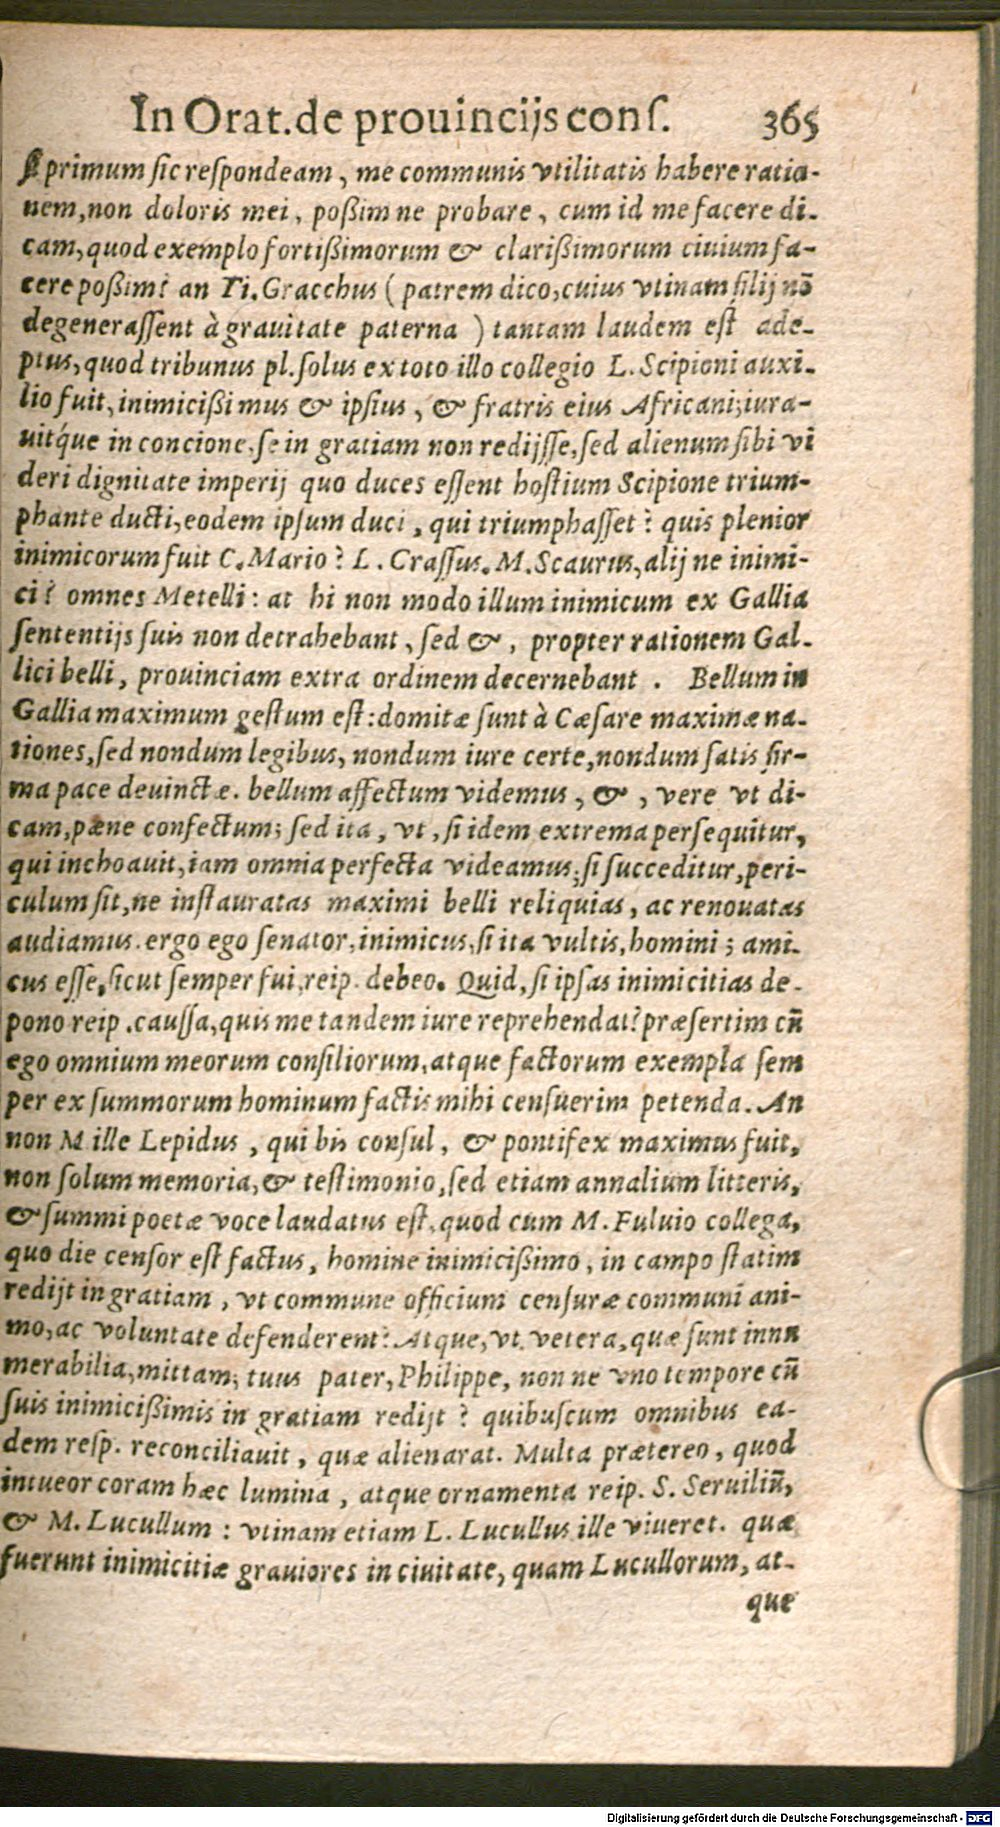 In Orat. de prouincijs conſ. 365
primum ſic reſpondeam, me communis vtilitatis habere ratio-
nem, non doloris mei, poßim ne probare, cum id me facere di-
cam, quod exemplo fortißimorum & clarißimorum ciuium fa-
cere poßim? an Ti. Gracchus ( patrem dico, cuius vtinam filij nõ
degeneraſſent à grauitate paterna ) tantam laudem eſt ade-
ptus, quod tribunus pl. ſolus ex toto illo collegio L. Scipioni auxi-
lio fuit, inimicißimus & ipſius, & fratris eius Africani; iura-
uitq́ue in concione, ſe in gratiam non redijſſe, ſed alienum ſibi vi
deri dignitate imperij quo duces eſſent hoſtium Scipione trium-
phante ducti, eodem ipſum duci, qui triumphaſſet? quis plenior
inimicorum fuit C. Mario? L. Craſſus. M. Scaurus, alij ne inimi-
ci? omnes Metelli: at hi non modo illum inimicum ex Gallia
ſententijs ſuis non detrahebant, ſed &, propter rationem Gal-
lici belli, prouinciam extra ordinem decernebant . Bellum in
Gallia maximum geſtum eſt: domitæ ſunt à Cæſare maximæ na-
tiones, ſed nondum legibus, nondum iure certe, nondum ſatis fir-
ma pace deuinctæ. bellum affectum videmus, &, vere vt di-
cam, pæne confectum; ſed ita, vt, ſi idem extrema perſequitur,
qui inchoauit, iam omnia perfecta videamus; ſi ſucceditur, peri-
culum ſit, ne inſtauratas maximi belli reliquias, ac renouatas
audiamus. ergo ego ſenator, inimicus, ſi ita vultis, homini; ami-
cus eſſe, ſicut ſemper fui, reip. debeo. Quid, ſi ipſas inimicitias de-
pono reip. cauſſa, quis me tandem iure reprehendat? præſertim cũ
ego omnium meorum conſiliorum, atque factorum exempla ſem
per ex ſummorum hominum factis mihi cenſuerim petenda. An
non M ille Lepidus, qui bis conſul, & pontifex maximus fuit,
non ſolum memoria, & teſtimonio, ſed etiam annalium litteris,
& ſummi poetæ voce laudatus eſt, quod cum M. Fuluio collega,
quo die cenſor eſt factus, homine inimicißimo, in campo ſtatim
redijt in gratiam, vt commune officium cenſuræ communi ani-
mo, ac voluntate defenderent? Atque, vt vetera, quæ ſunt innu
merabilia, mittam; tuus pater, Philippe, non ne vno tempore cũ
ſuis inimicißimis in gratiam redijt? quibuſcum omnibus ea-
dem reſp. reconciliauit, quæ alienarat. Multa prætereo, quod
intueor coram hæc lumina, atque ornamenta reip. S. Seruiliũ,
& M. Lucullum: vtinam etiam L. Lucullus ille viueret. quæ
fuerunt inimicitiæ grauiores in ciuitate, quam Lucullorum, at-
que
Digitalisierung gefördert durch die Deutsche Forschungsgemeinschaft - DFG